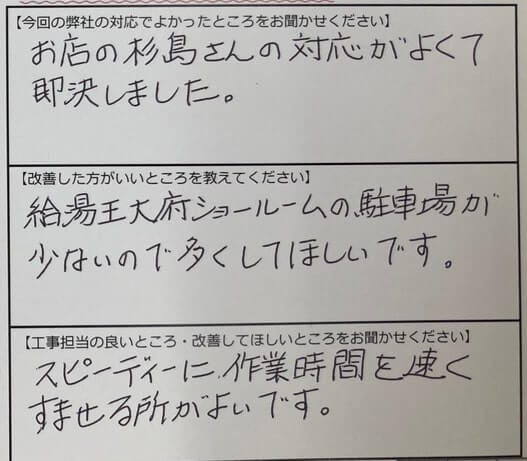 【今回の弊社の対応でよかったところをお聞かせください】
お店の杉島さんの対応がよくて
即決しました。
【改善した方がいいところを教えてください】
給湯王大府ショールームの駐車場が
少ないので多くしてほしいです。
【工事担当の良いところ・改善してほしいところをお聞かせください】
スピーディーに作業時間を速く
すませる所がよいです。